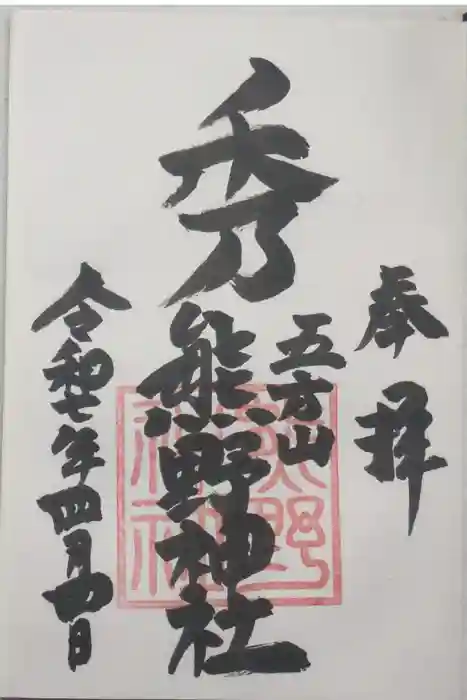 奉拝
五方山
秀
熊野神社
令和七年四月 日
熊野
神社